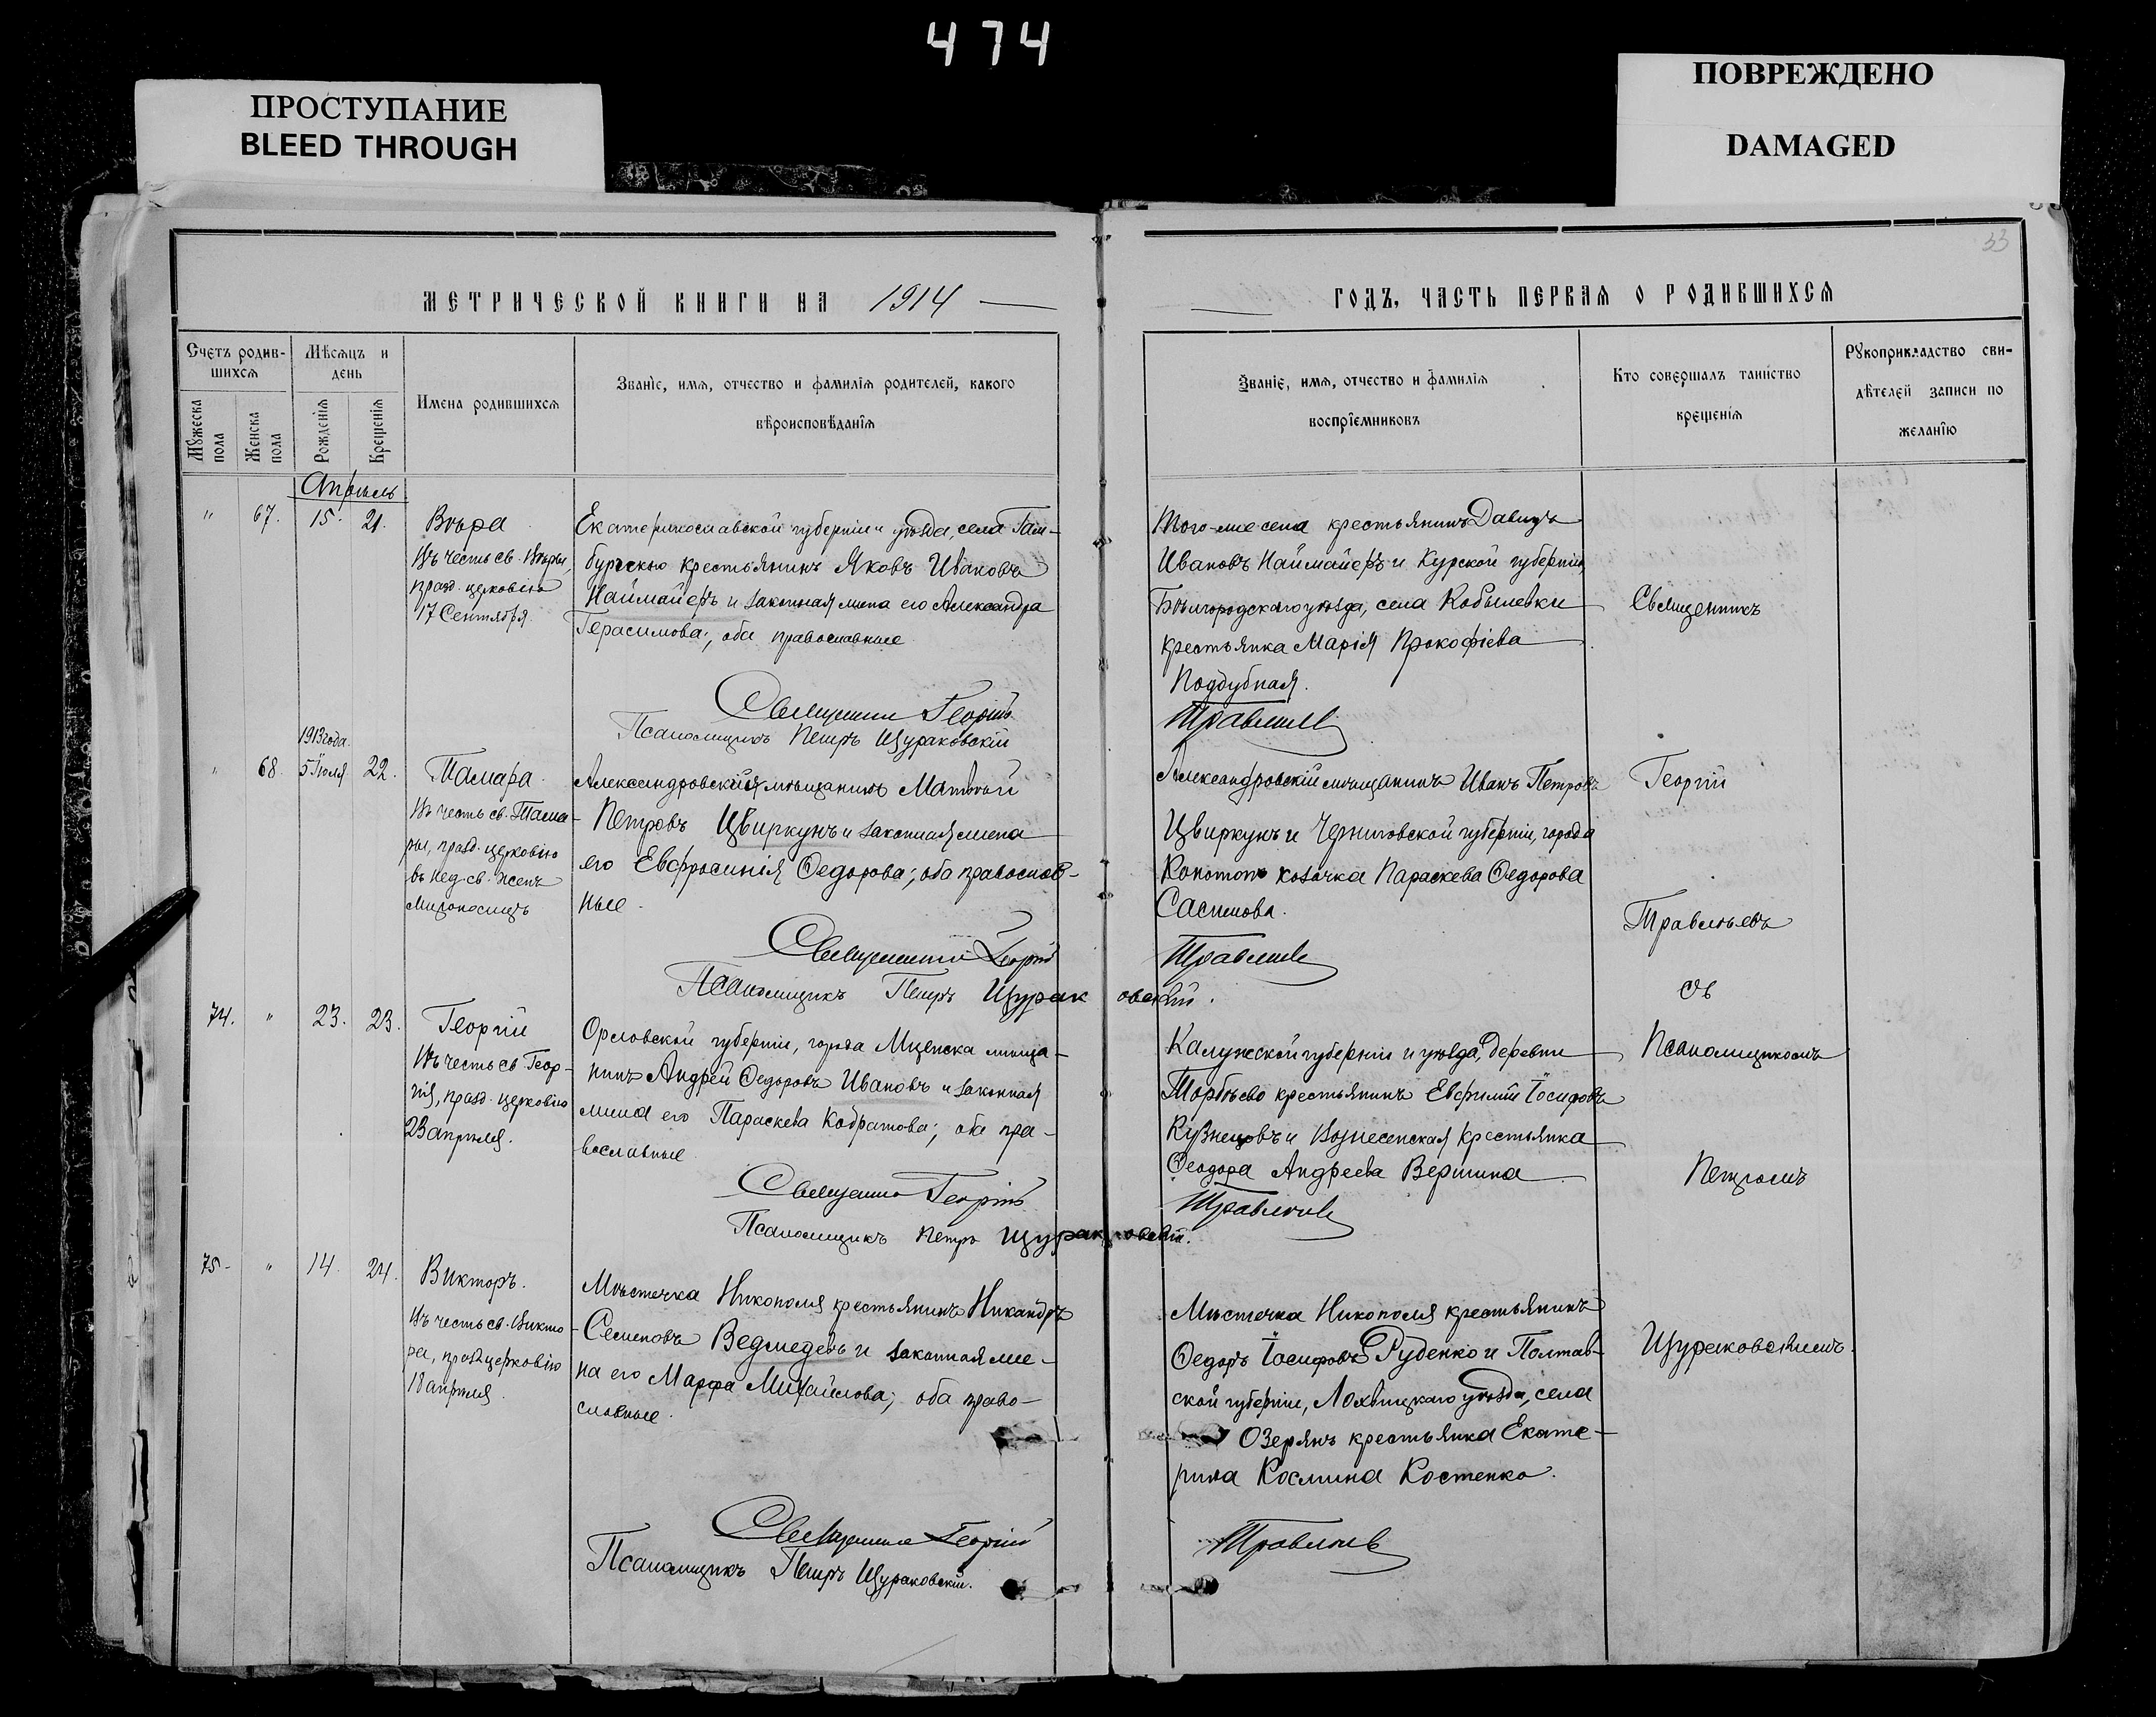 474
ПРОСТУПАНИЕ
BLEED THROUGH
ПОВРЕЖДЕНО
DAMAGED
33
МЕТРИЧЕСКОЙ КНИГИ НА 1914
ГОДЪ, ЧАСТЬ ПЕРВАЯ О РОДИВШИХСЯ
Счетъ родив-
шихся
Мѣсяцъ и
день
Мужеска
пола
Женска
пола
Рожденія
Крещенія
Имена родившихся
Званіе, имя, отчество и фамилія родителей, какого
вѣроисповѣданія
Званіе, имя, отчество и фамилія
воспріемниковъ
Кто совершалъ таинство
крещенія
Рукоприкладство сви-
дѣтелей записи по
желанію
Апрѣль
" 67. 15. 21.
Вѣра
Въ честь св. Вѣры,
празд. церковію
17 Сентября.
Екатеринославской губерніи и уѣзда, села Гам-
бургскю крестьянинъ Яковъ Ивановъ
Наймайеръ и законная жена его Александра
Герасимова; оба православные
Того-же села крестьянинъ Давидъ
Ивановъ Наймайеръ и Курской губерніи,
Бѣлгородскаго уѣзда, села Кобылевки
крестьянка Марія Прокофіева
Поддубная.
Священникъ Георгій
Травлѣевъ
Псаломщикъ Петръ Щураковскій
1913 года.
" 68. 5 Іюля 22.
Тамара.
Въ честь св. Тама-
ры, празд. церковію
въ нед. св. женъ
мироносицъ
Александровскій мѣщанинъ Матвѣй
Петровъ Цвиркунъ и законная жена
его Евфросинія Ѳедорова; оба православ-
ные.
Александровскій мѣщанинъ Иванъ Петровъ
Цвиркунъ и Черниговской губерніи, города
Конотопъ козачка Параскева Ѳедорова
Священникъ Георгій
Травлѣевъ
Псаломщикъ Петръ Щураковскій.
74. " 23. 23.
Георгій
Въ честь св. Геор-
гія, празд. церковію
23 апрѣля.
Орловской губерніи, города Мценска мѣща-
нинъ Андрей Ѳедоровъ Ивановъ и законная
жена его Параскева Кодратова; оба пра-
вославные
Калужской губерніи и уѣзда, деревни
Торбѣево крестьянинъ Евфимій Іосифовъ
Кузнецовъ и Вознесенская крестьянка
Ѳеодора Андреева Вершина
Священникъ Георгій
Травлѣевъ
Псаломщикъ Петръ Щураковскій.
75. " 14. 24.
Викторъ.
Въ честь св. Викто-
ра, празд. церковію
18 апрѣля.
Мѣстечка Никополя крестьянинъ Никандръ
Семеновъ Ведмедевъ и законная же-
на его Марфа Михайлова; оба право-
славные.
Мѣстечка Никополя крестьянинъ
Ѳедоръ Іосифовъ Руденко и Полтав-
ской губерніи, Лохвицкаго уѣзда, села
Озерянъ крестьянка Екате-
рина Космина Костенко.
Священникъ Георгій
Травлѣевъ
Псаломщикъ Петръ Щураковскій.
Священникъ
Георгій
Травлѣевъ
съ
Псаломщикомъ
Петромъ
Щураковскимъ.